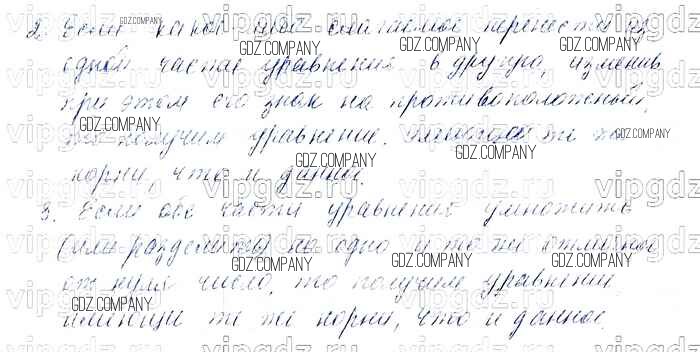 2. Если какое-либо слагаемое перенести из
одной части уравнения в другую, изменив
при этом его знак на противоположный,
то получим уравнение, имеющее те же
корни, что и данное.
3. Если обе части уравнения умножить
(или разделить) на одно и то же отличное
от нуля число, то получим уравнение,
имеющее те же корни, что и данное.